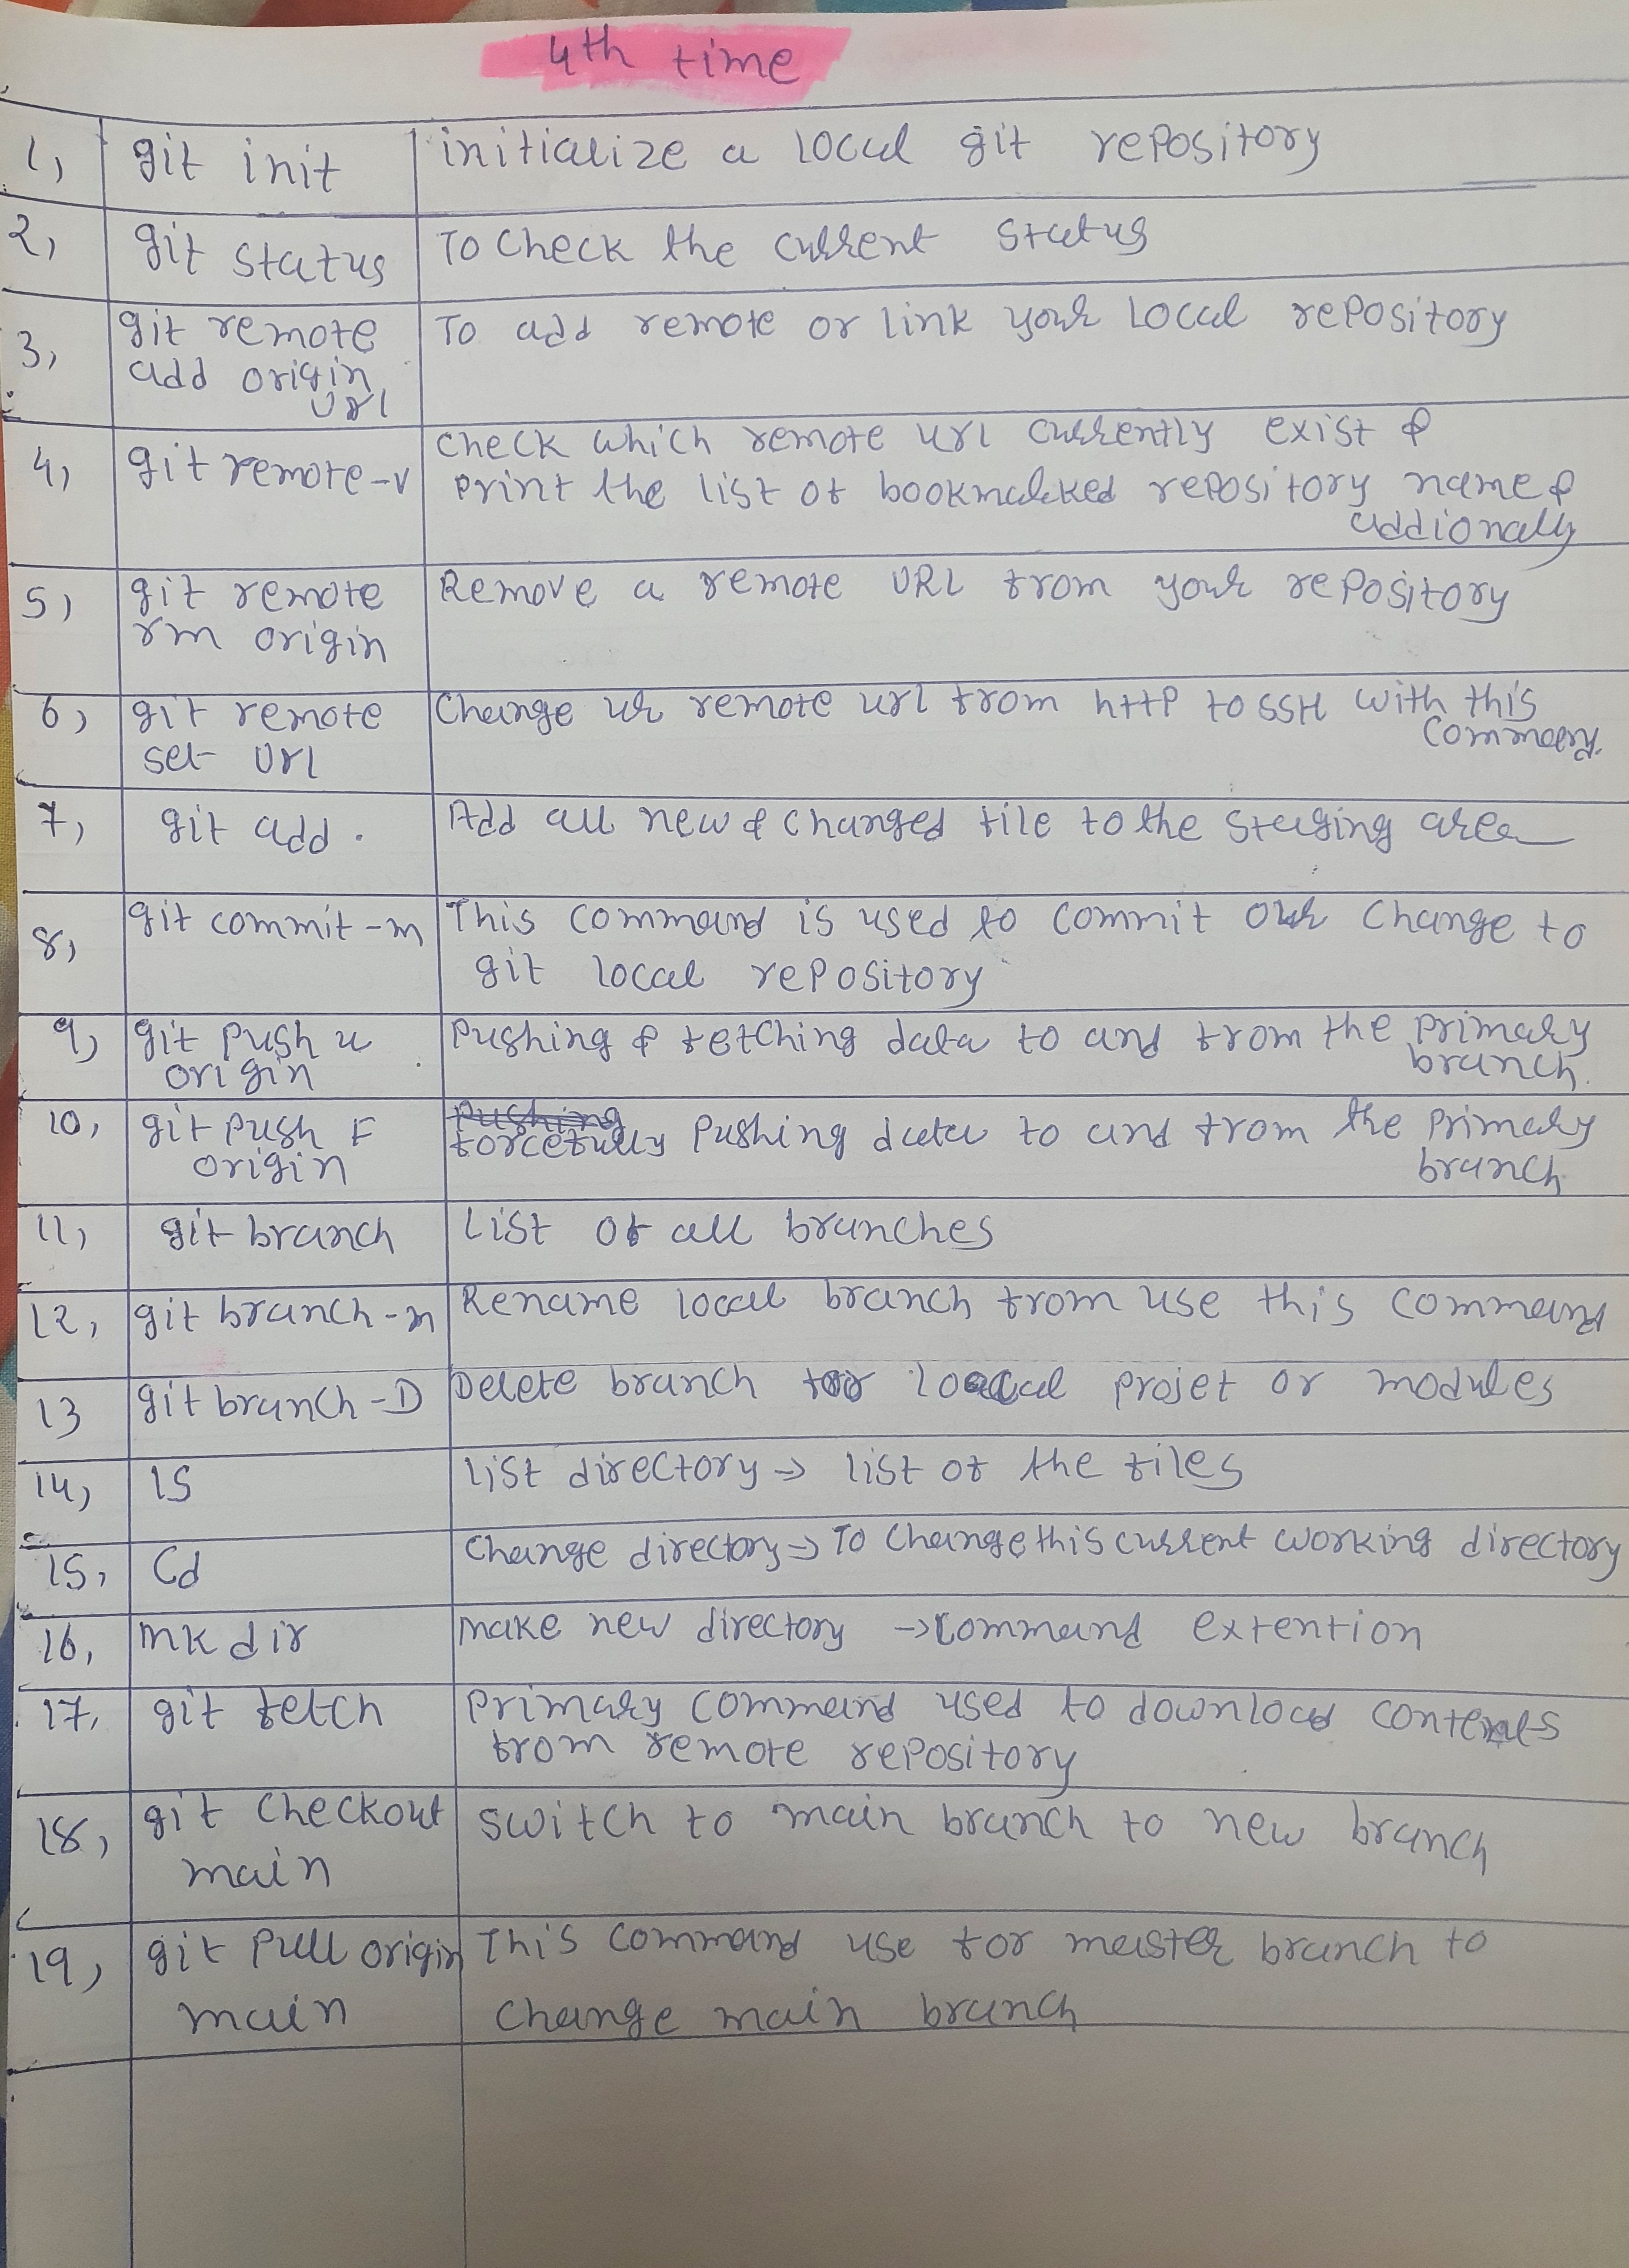 4th time
1, git init initialize a local git repository
2, git status To check the current status
3, git remote To add remote or link your local repository
add origin
url
4, git remote -v check which remote url currently exist &
print the list of bookmarked repository name &
addionally
5, git remote Remove a remote URL from your repository
rm origin
6, git remote Change ur remote url from http to SSH with this
set url command.
7, git add . Add all new & changed file to the staging area
8, git commit -m This command is used to commit our change to
git local repository
9, git push u Pushing & fetching data to and from the primary
origin branch.
10, git push F pushing
origin forcefully pushing data to and from the primary
branch
11, git branch List of all branches
12, git branch -m Rename local branch from use this command
13 git branch -D Delete branch for local projet or modules
14, ls List directory → list of the files
15, cd change directory → To change this current working directory
16, mkdir make new directory → command extention
17, git fetch primary command used to download contents
from remote repository
18, git checkout switch to main branch to new branch
main
19, git pull origin This command use for master branch to
main change main branch